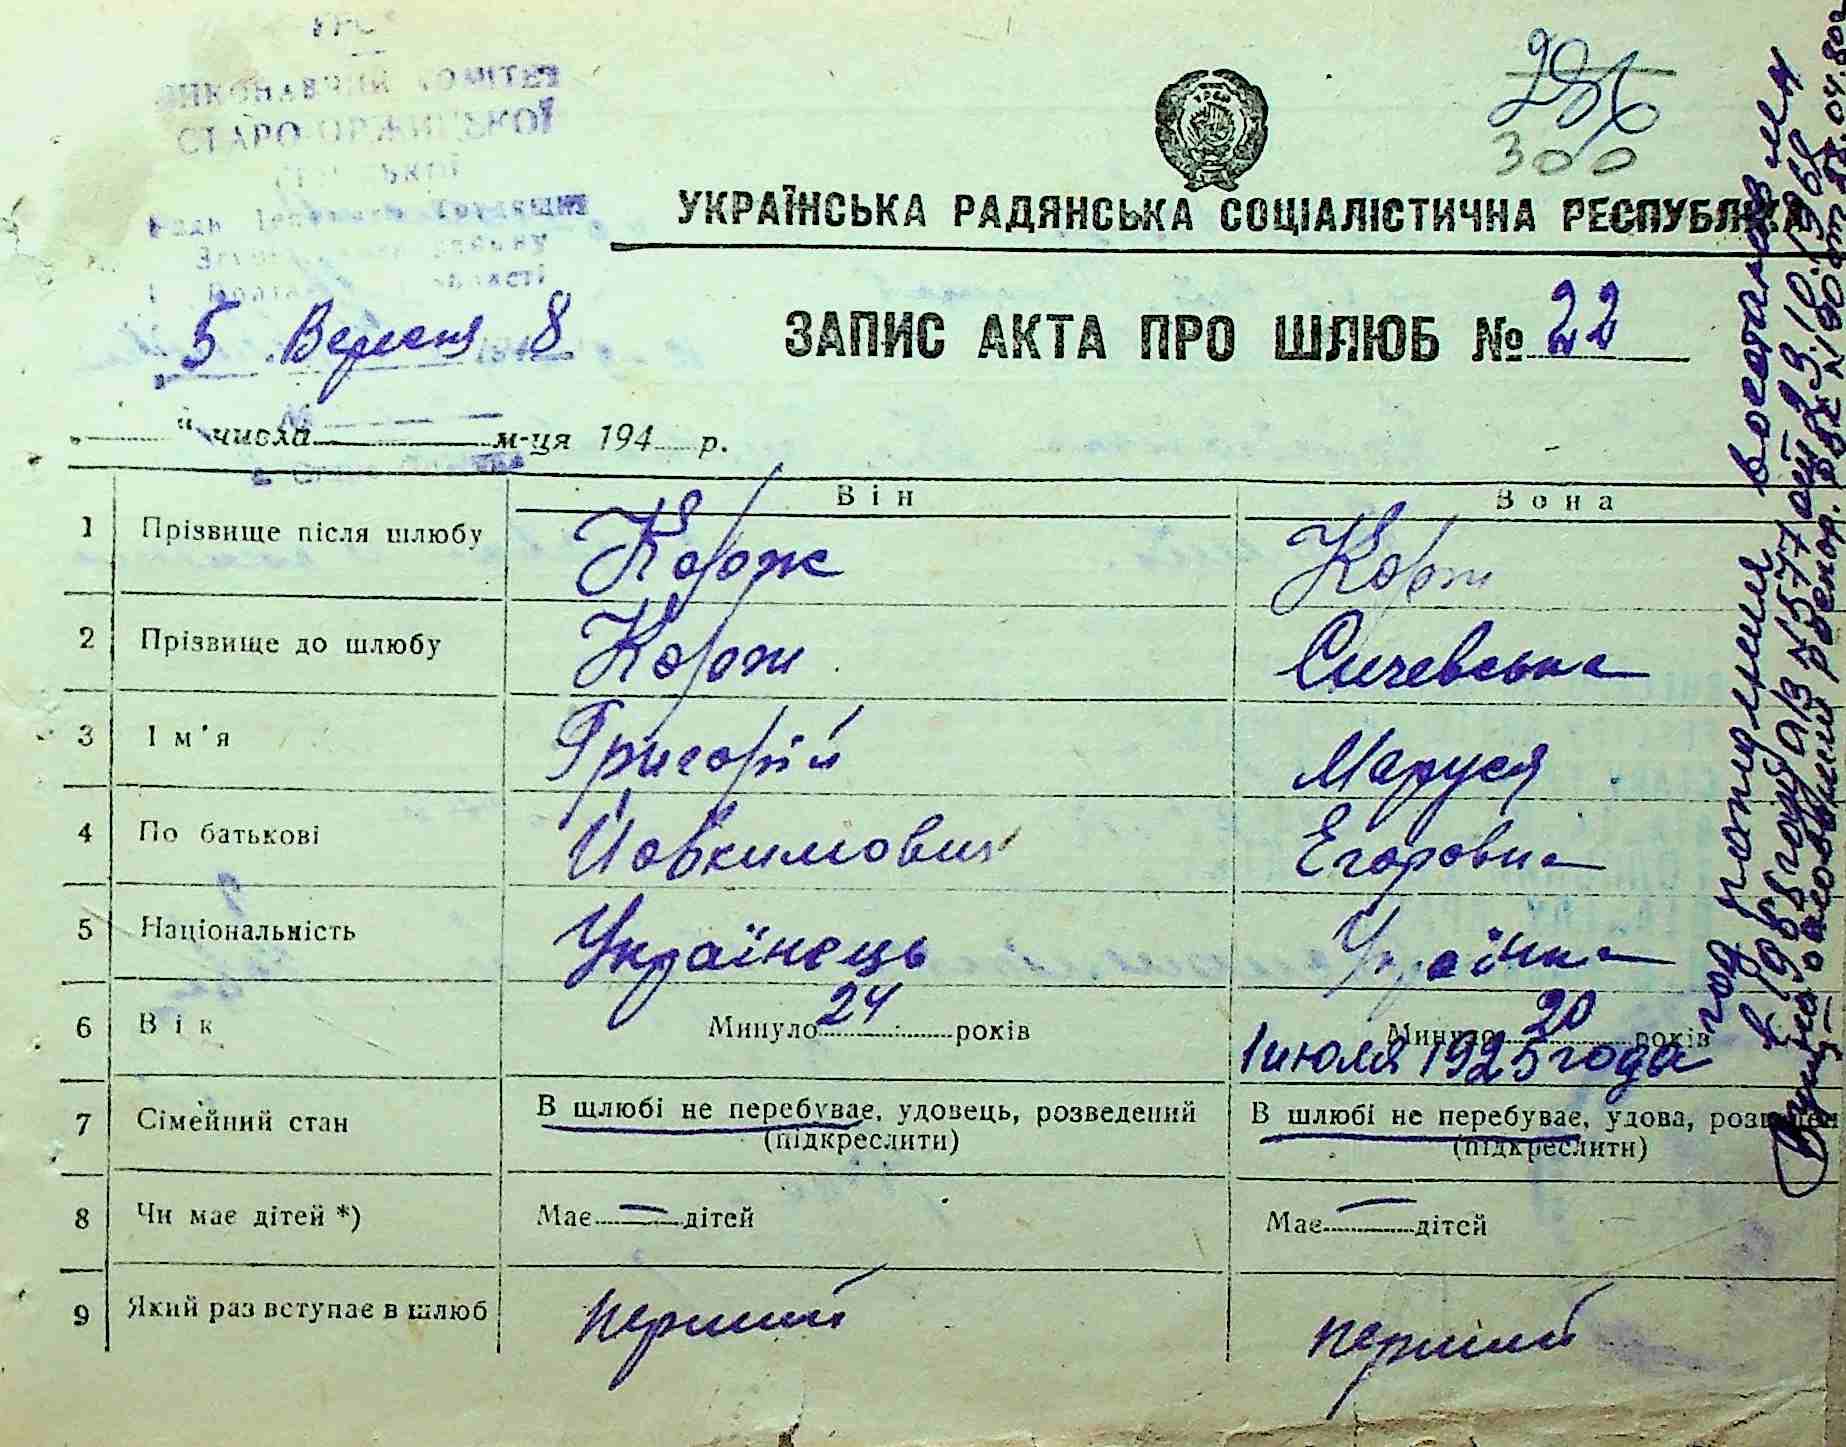 ВИКОНАВЧИЙ КОМІТЕТ
СТАРО ОРЖИЦЬКОЇ
286
300
УКРАЇНСЬКА РАДЯНСЬКА СОЦІАЛІСТИЧНА РЕСПУБЛІКА
5 Вересня 8
ЗАПИС АКТА ПРО ШЛЮБ № 22
" " числа м-ця 194 р.
Він Вона
1 Прізвище після шлюбу Корж Корж
2 Прізвище до шлюбу Корж Сичевська
3 Ім'я Григорій Маруся
4 По батькові Йовкимович Егоровна
5 Національність Українець Українка
6 Вік Минуло 24 років Минуло 20 років
1 июля 1925 года
7 Сімейний стан В шлюбі не перебуває, удовець, розведений В шлюбі не перебуває, удова,
(підкреслити) (підкреслити)
8 Чи має дітей *) Має — дітей Має — дітей
9 Який раз вступає в шлюб перший перший
год рождения восстановлен